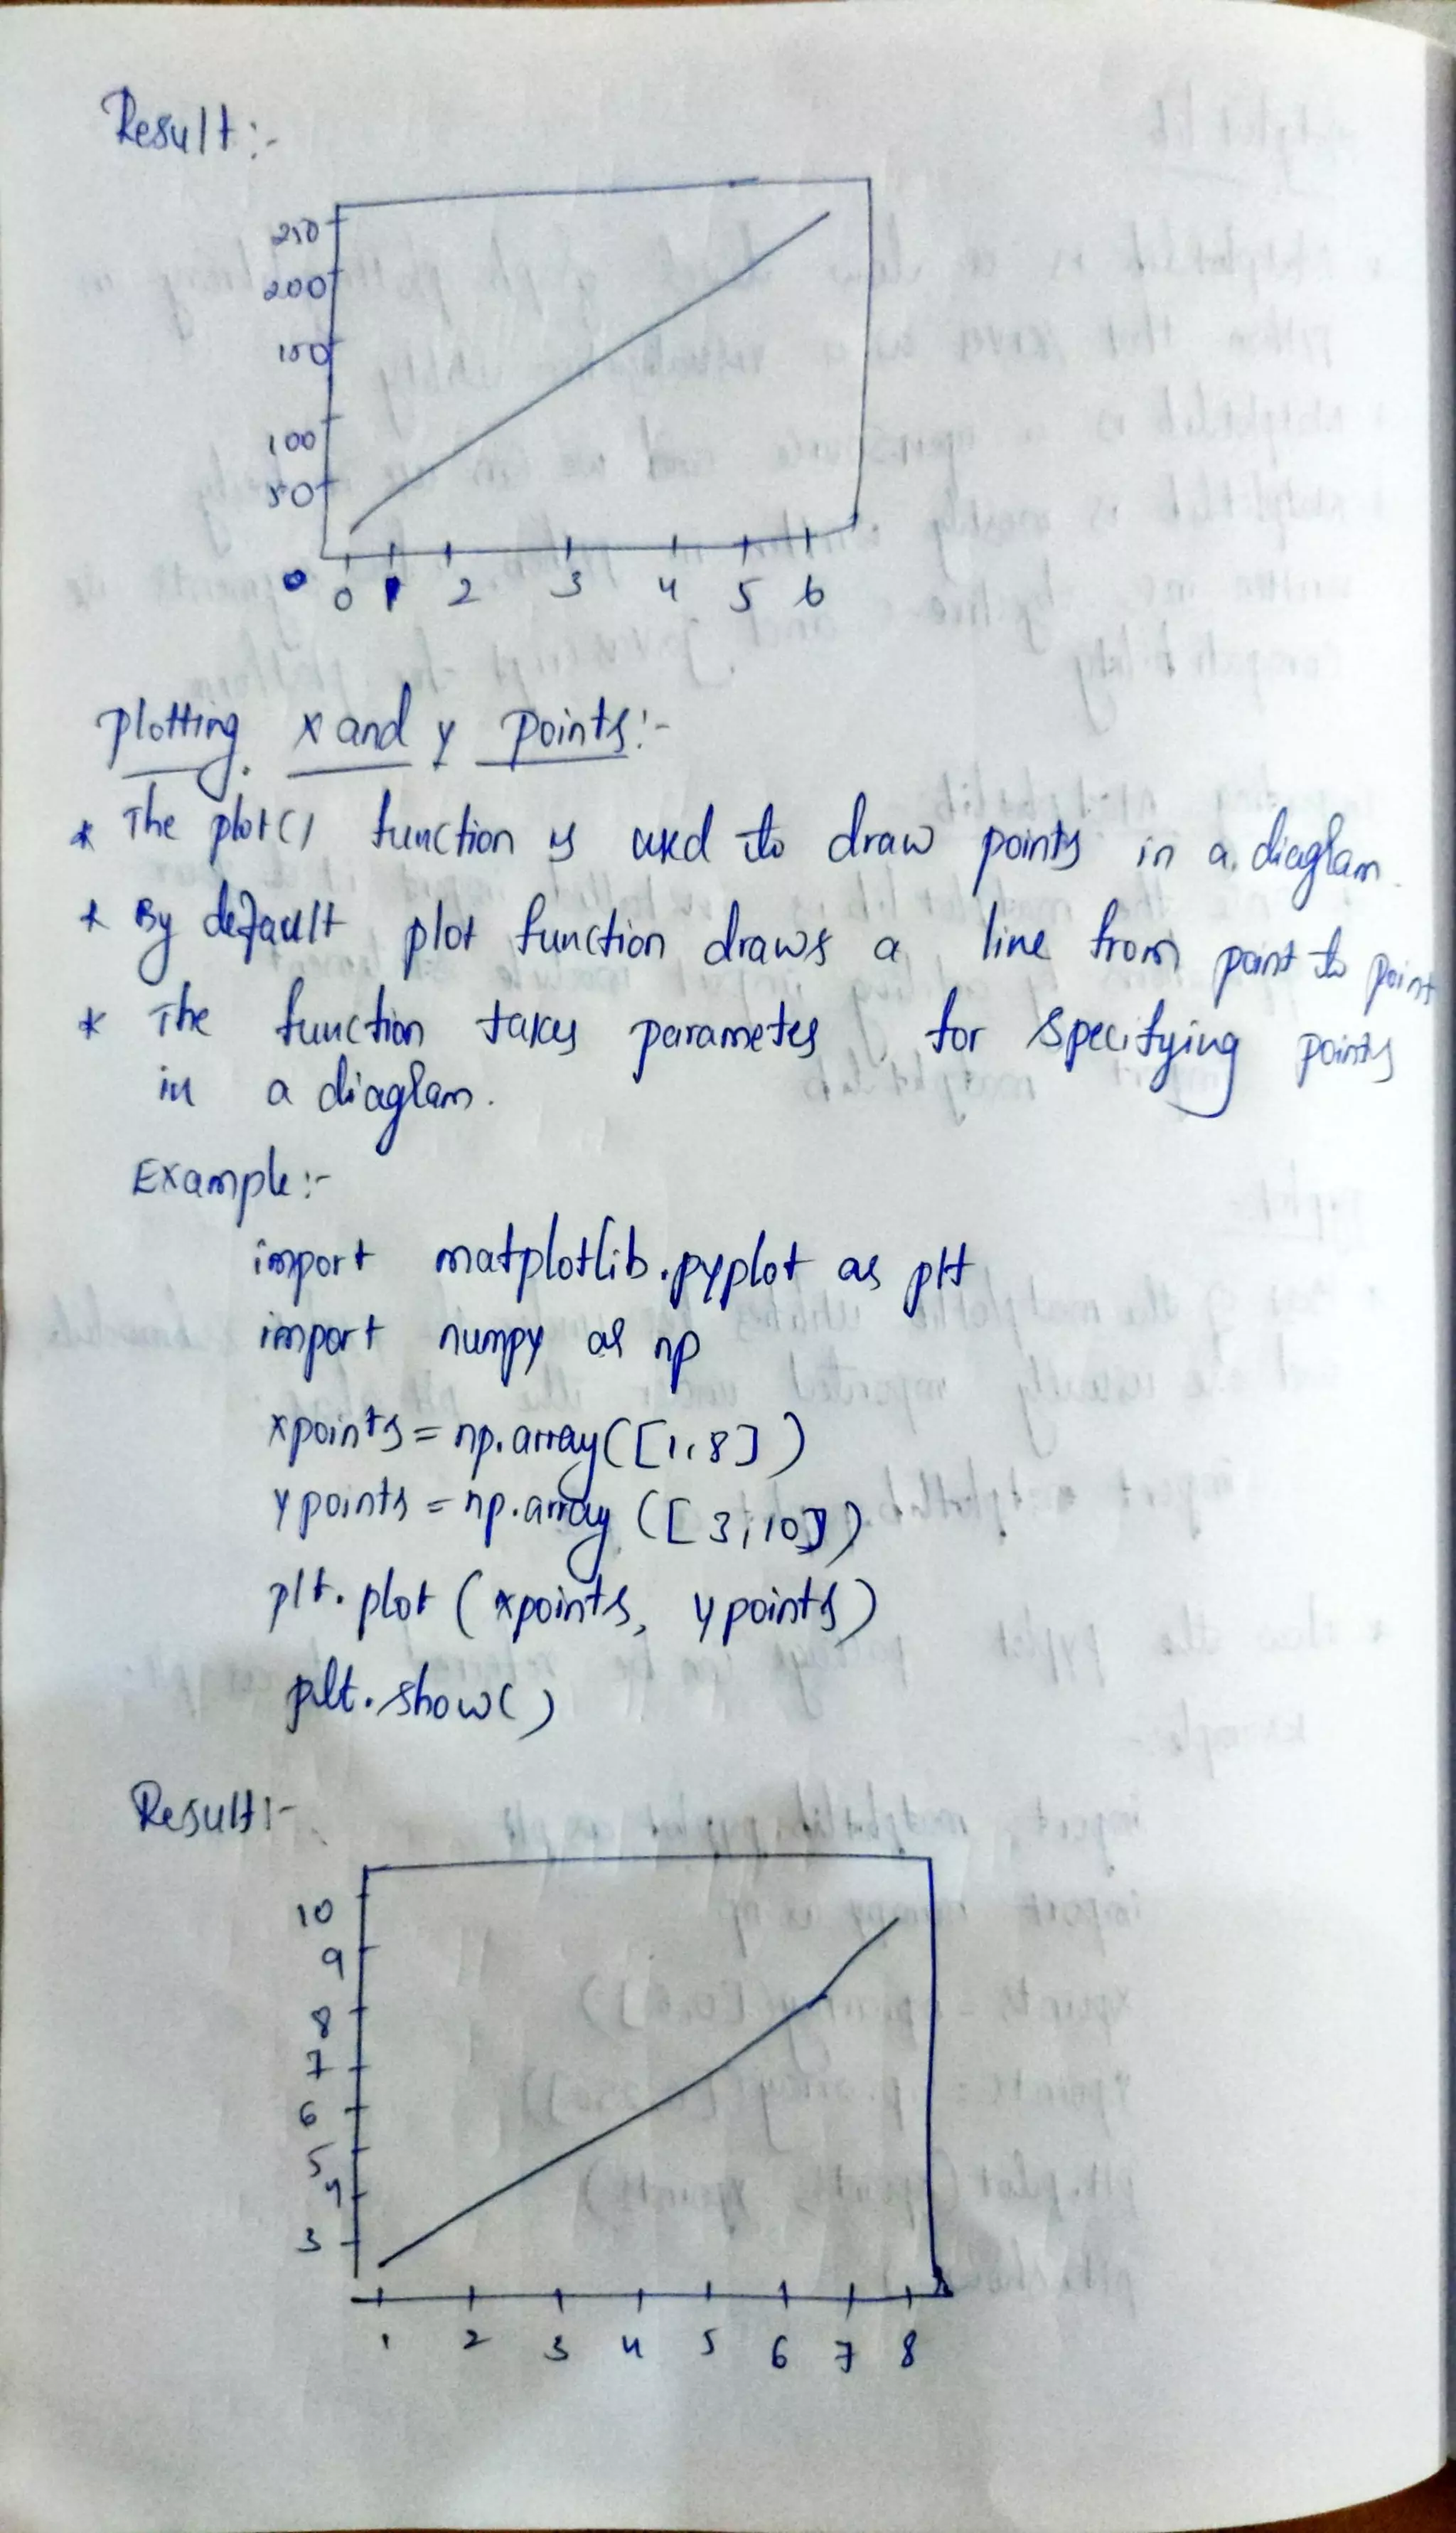 Result:-
250
200
150
100
50
0
0 1 2 3 4 5 6
Plotting x and y points:-
* The plot() function is used to draw points in a diaglam.
* By default plot function draws a line from point to point
* The function takes parametes for specifying points
in a diaglam.
Example:-
import matplotlib.pyplot as plt
import numpy as np
xpoints = np.array([1,8])
ypoints = np.array([3,10])
plt.plot (xpoints, ypoints)
plt.show()
Result:-
10
9
8
7
6
5
4
3
1 2 3 4 5 6 7 8